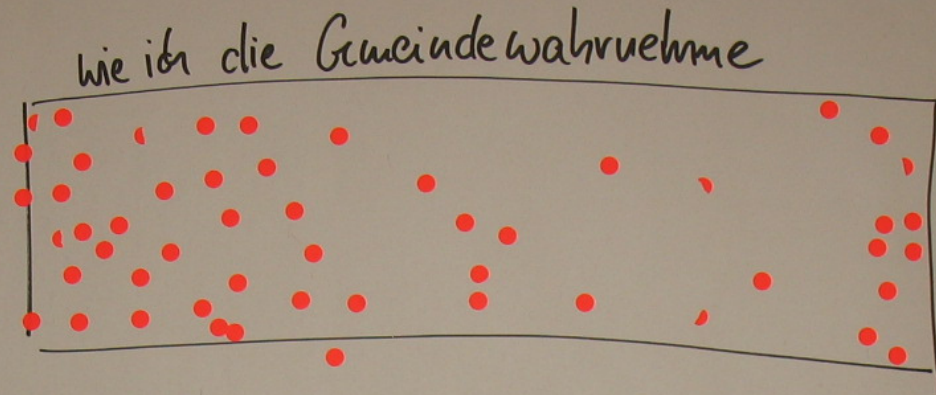 wie ich die Gemeinde wahrnehme